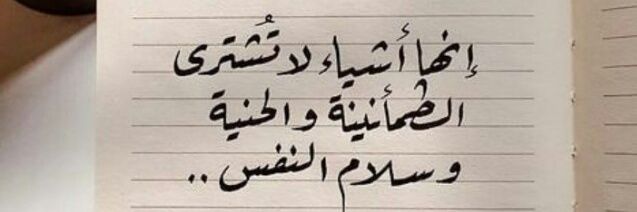 إنها أشياء لا تُشترى
الطمأنينة والحنية
وسلام النفس ..